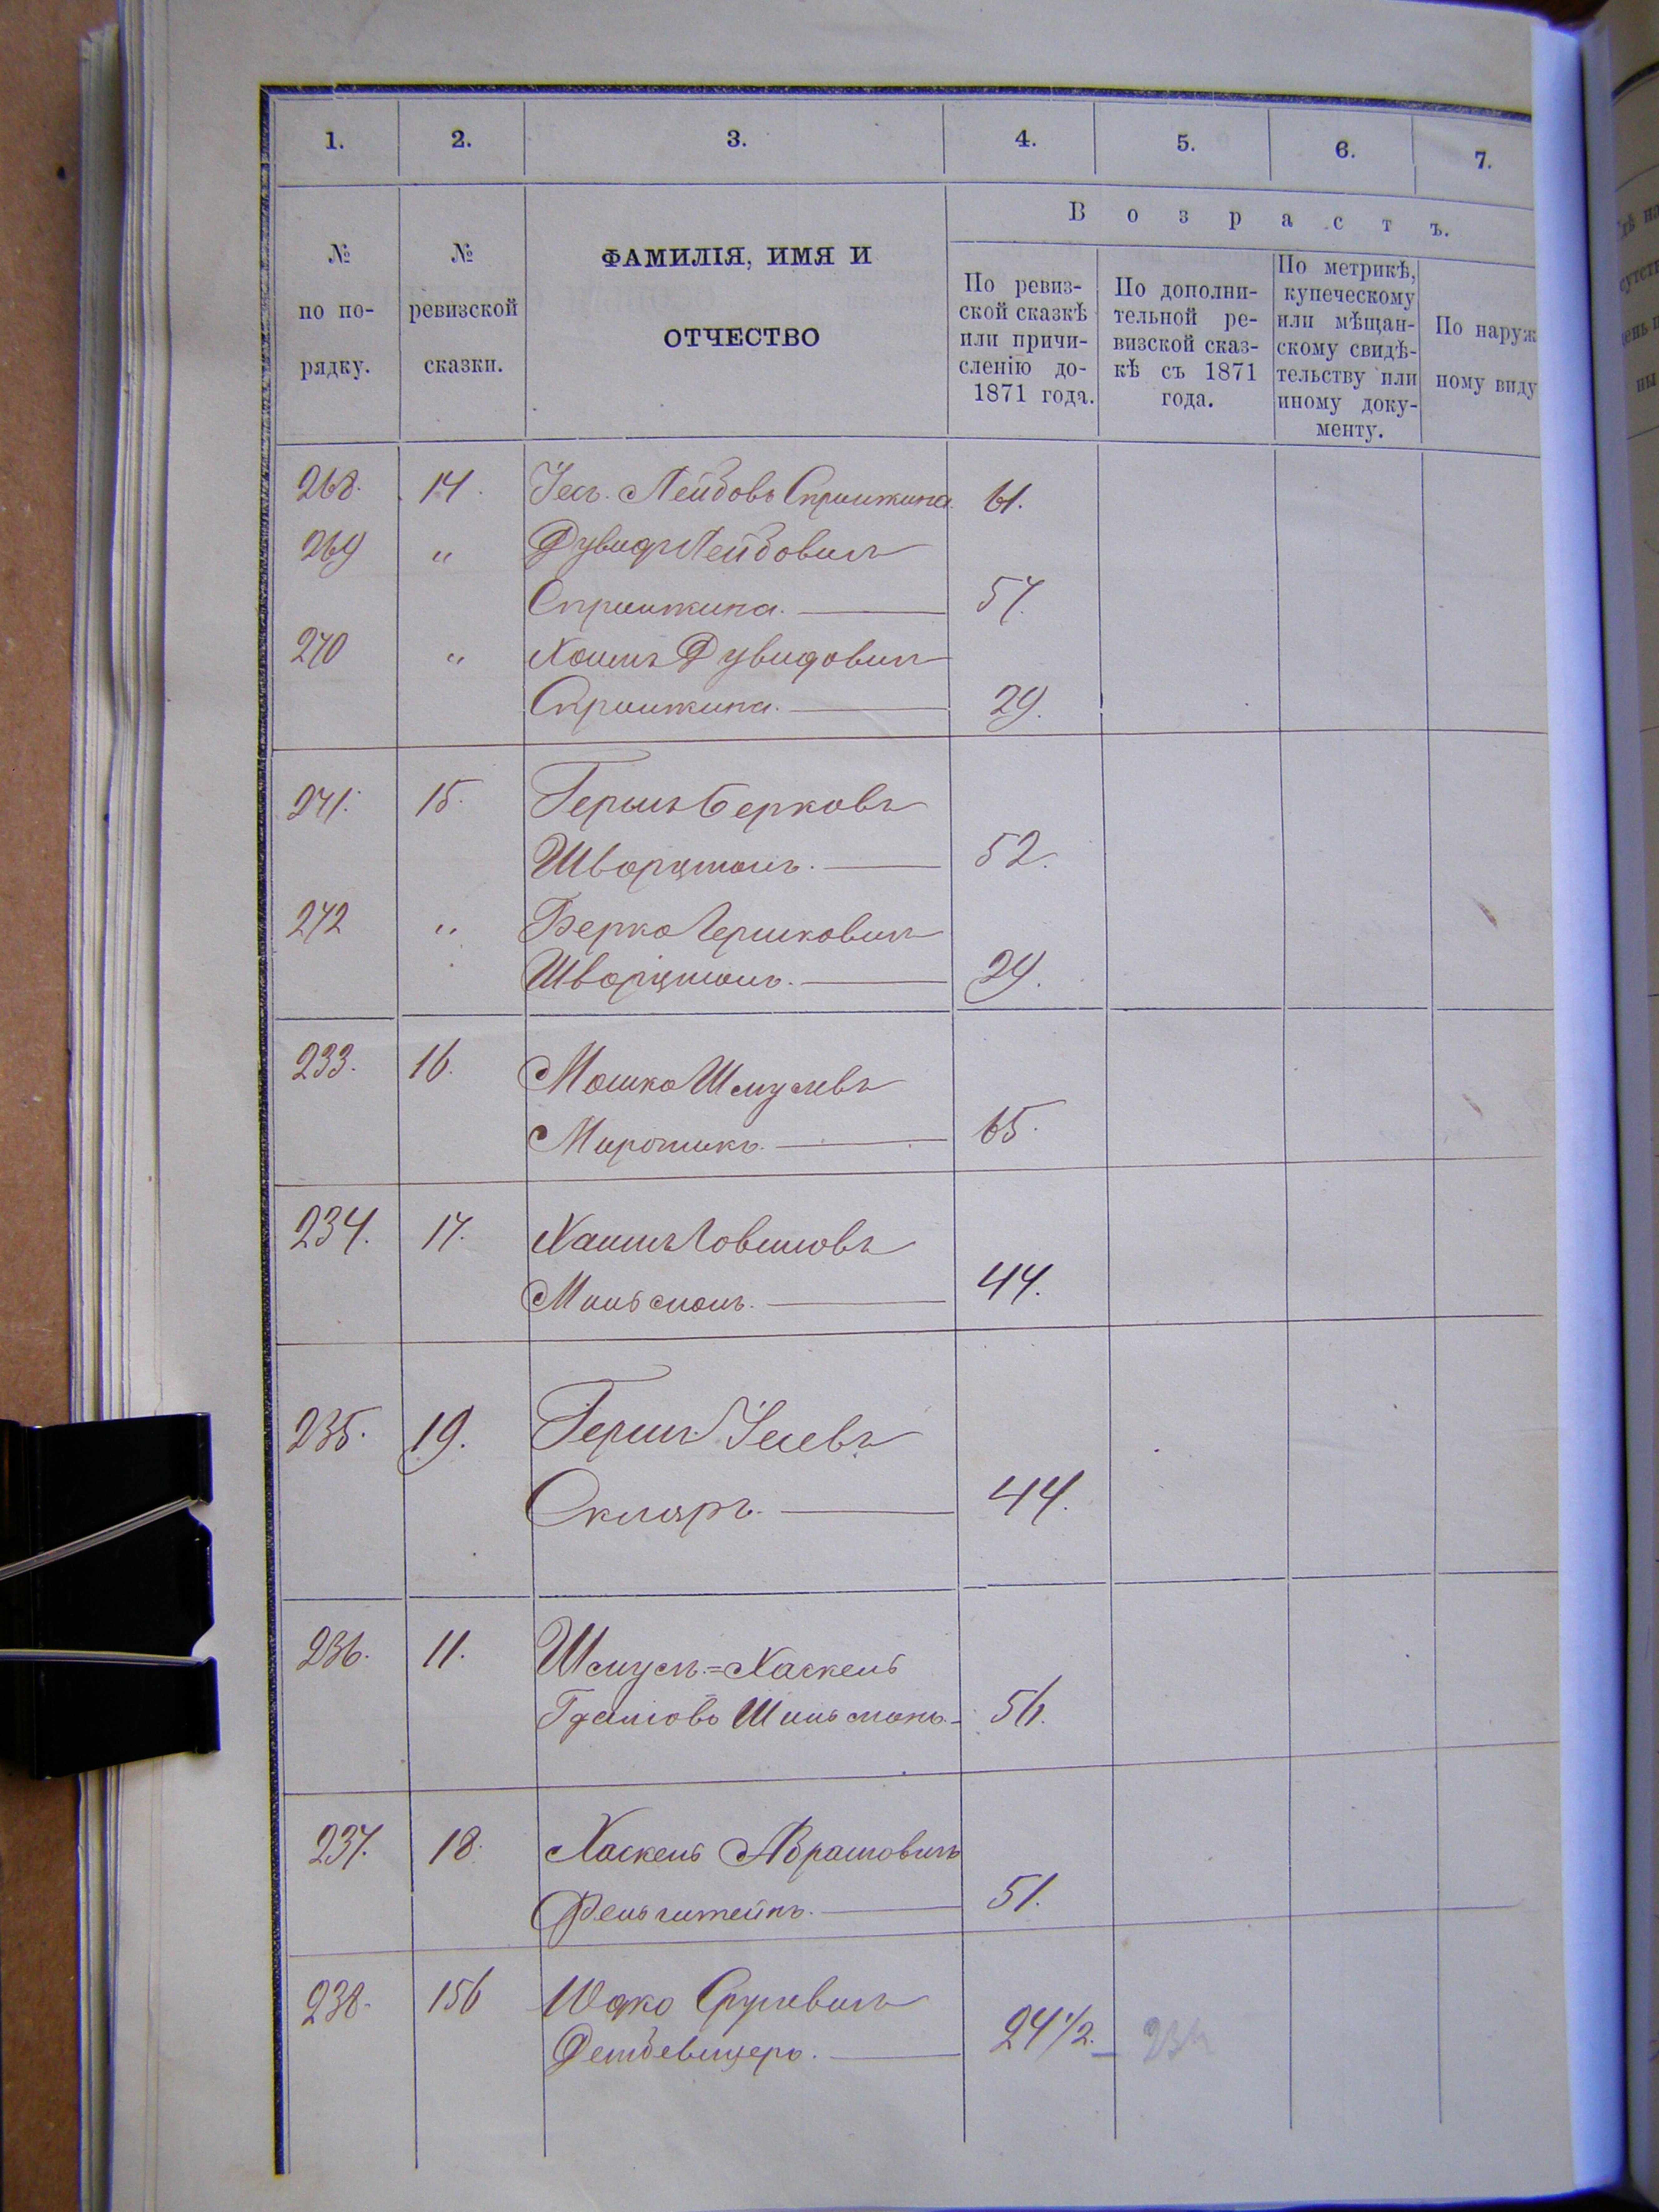 1. 2. 3. 4. 5. 6. 7.
№ по по-рядку.
№ ревизской сказки.
ФАМИЛІЯ, ИМЯ И
ОТЧЕСТВО
Возрастъ.
По ревиз-
ской сказкѣ
или причи-
сленію до-
1871 года.
По дополни-
тельной ре-
визской сказ-
кѣ съ 1871
года.
По метрикѣ,
купеческому
или мѣщан-
скому свидѣ-
тельству или
иному доку-
менту.
По наруж
ному виду
268. 14. Лейбовъ Спришкина. 61.
269 " Дувидъ Лейбовичъ
Спришкина. 57.
270 " Хаимъ Дувидовичъ
Спришкина. 29.
271. 15. Гершъ Берковъ
Шварцманъ. 52.
272 " Берко Гершковичъ
Шварцманъ. 29.
233. 16. Мошко Шмулевъ
Мирошикъ. 65.
234. 17. Хаимъ Іовшіовъ
Мильманъ. 44.
235. 19. Гершъ
Скляръ. 44.
236. 11. Шмуль=Хаскель
Шильманъ. 56.
237. 18. Хаскель Абрамовичъ
Фельштейнъ. 51.
238. 156 Шулевичъ
24 1/2.